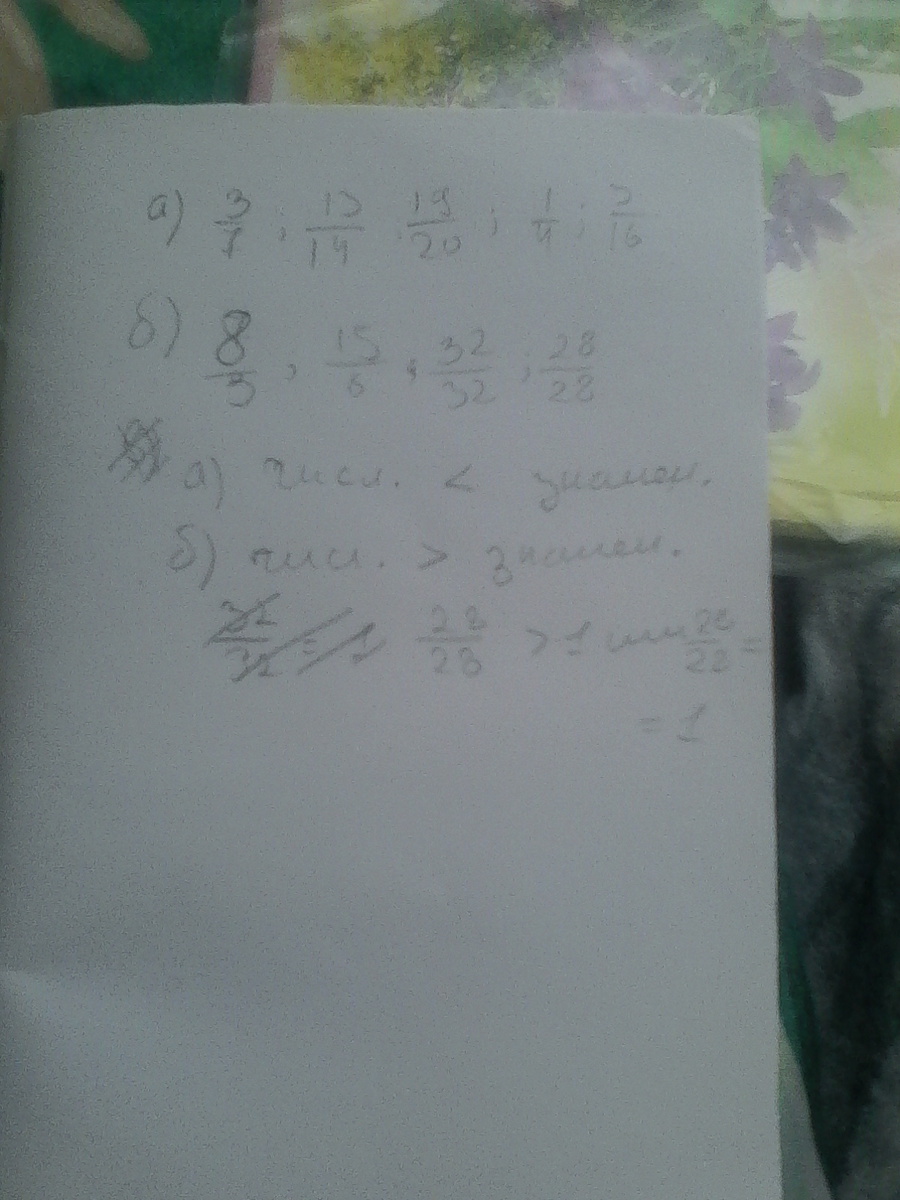 а) 3/7 ; 13/14 19/20 ; 1/4 ; 3/16
б) 8/3 , 15/6 , 32/32 ; 28/28
а) числ. < знамен.
б) числ. > знамен.
32/32 = 1 28/28 > 1 или 28/28 =
= 1